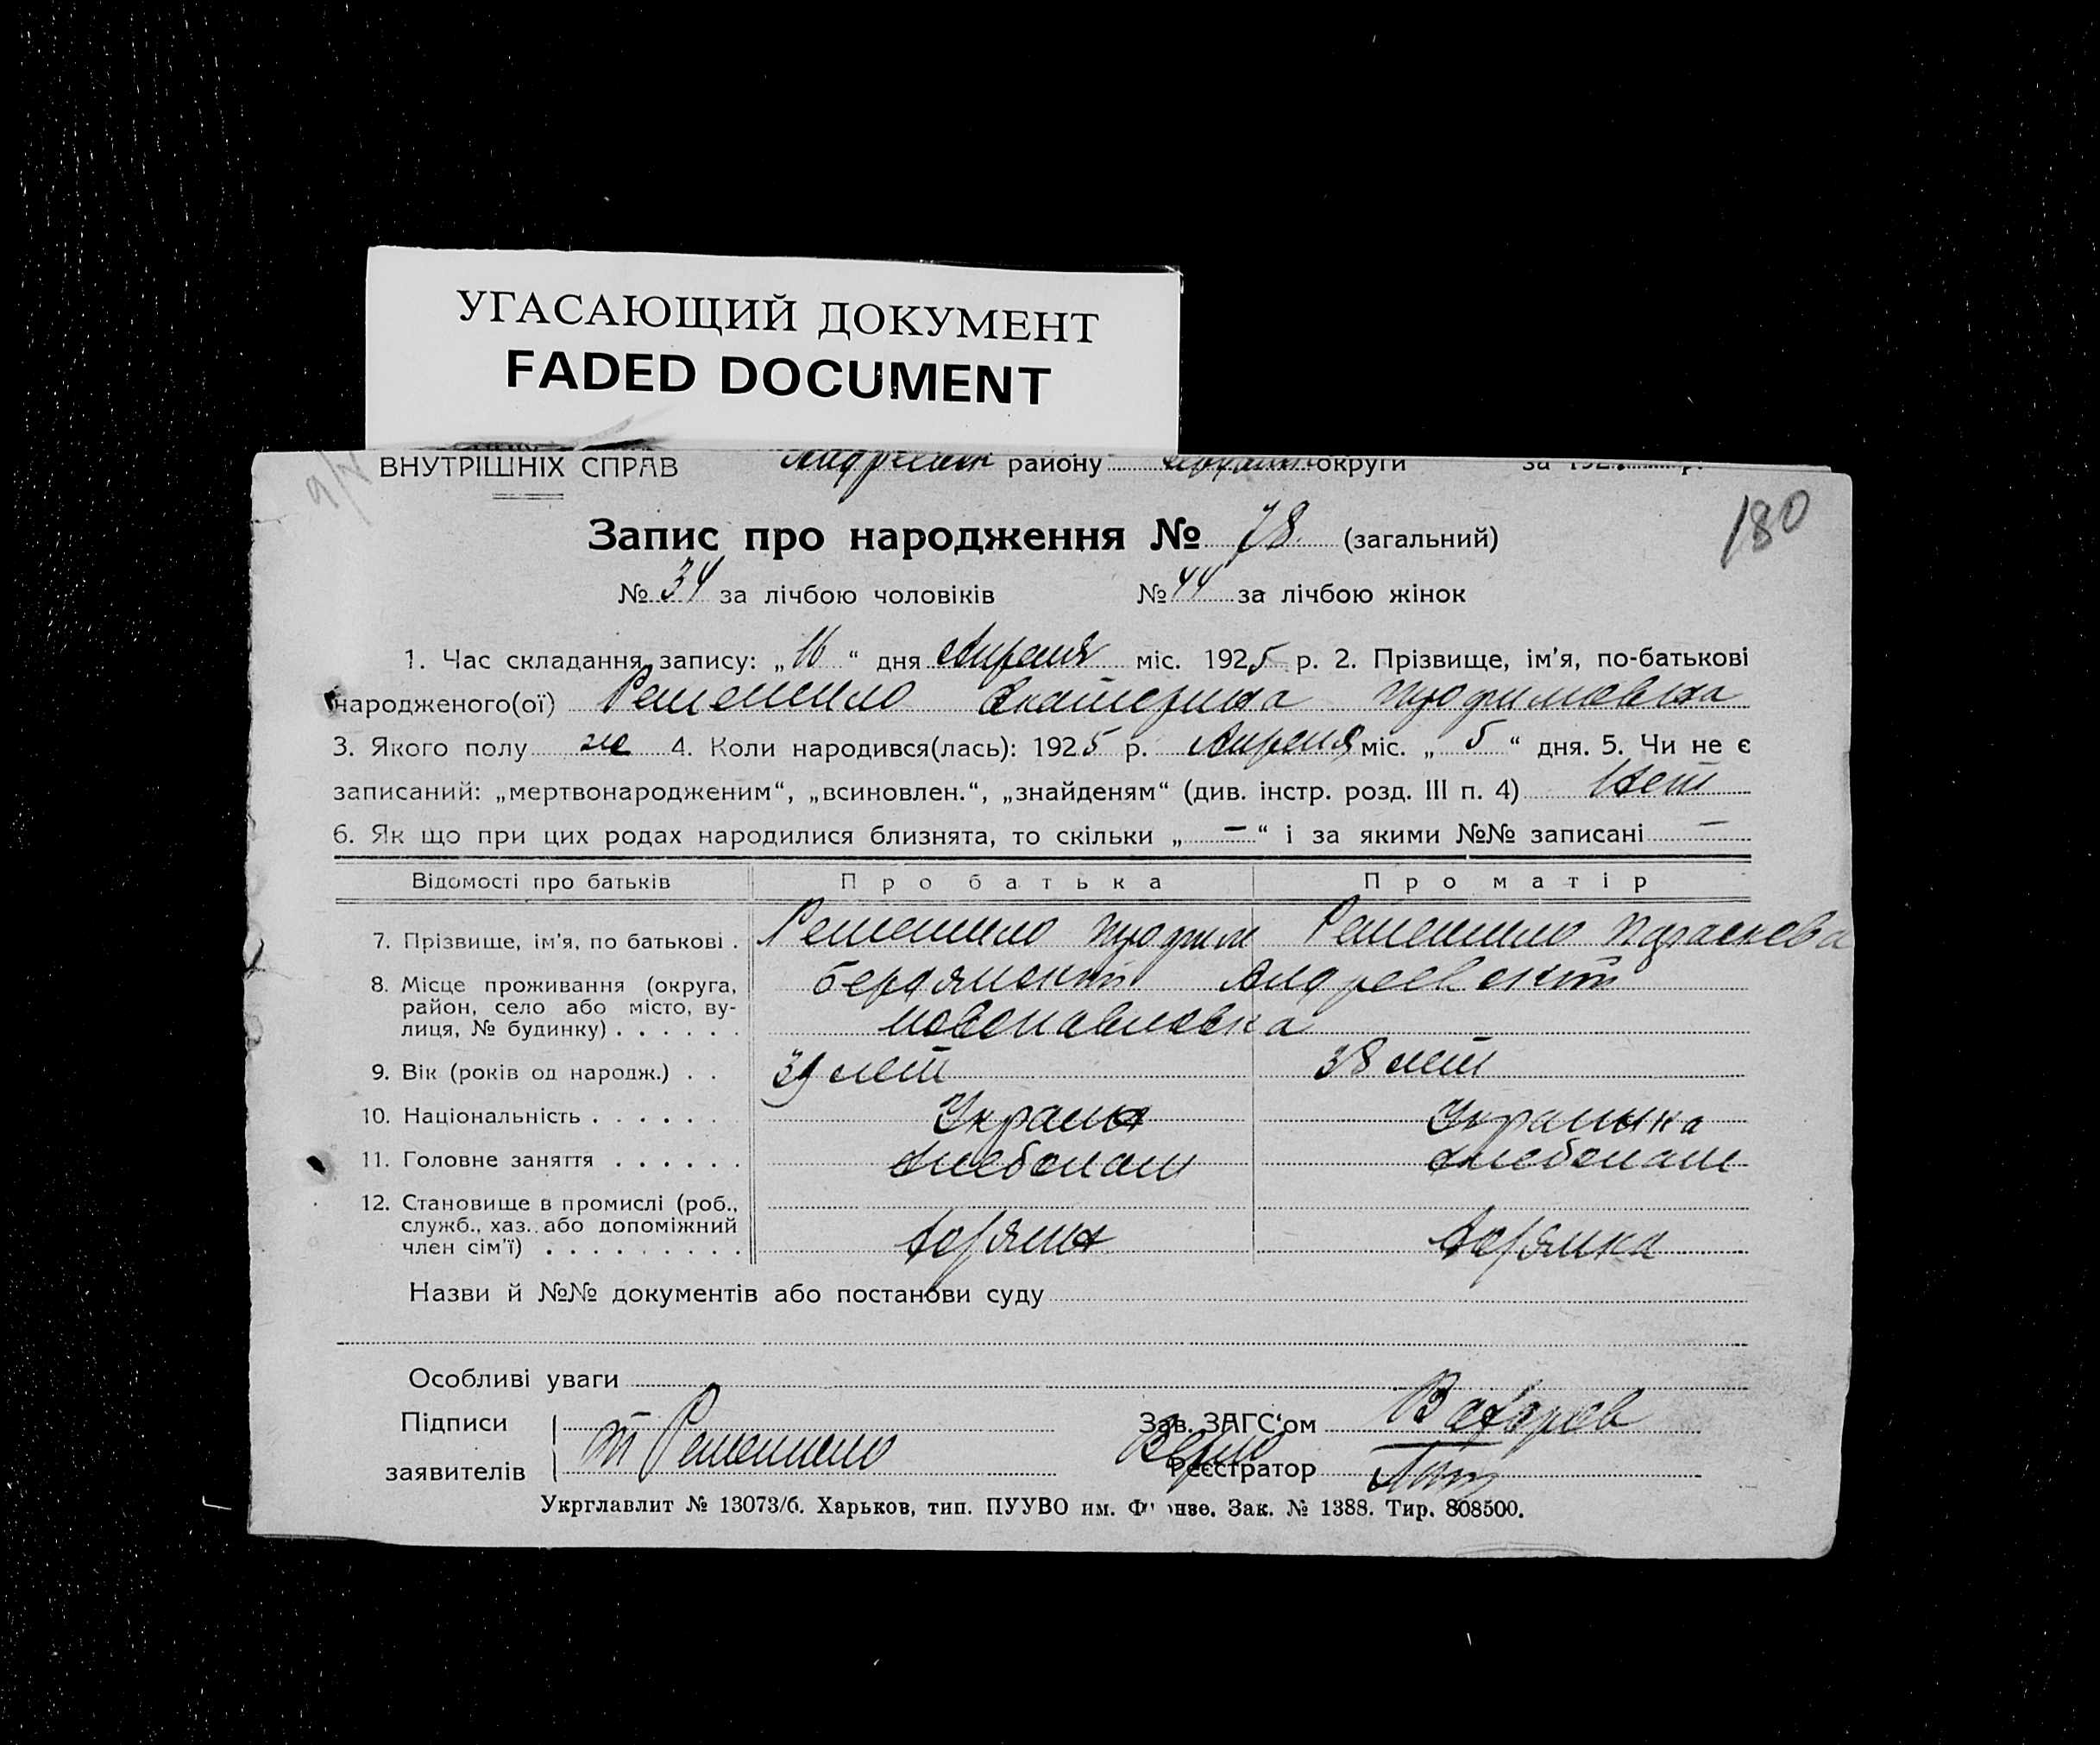 УГАСАЮЩИЙ ДОКУМЕНТ
FADED DOCUMENT
ВНУТРІШНІХ СПРАВ району округи за 192 р.
Запис про народження № 78 (загальний)
180
№ 34 за лічбою чоловіків № 44 за лічбою жінок
1. Час складання запису: „16“ дня Апреля міс. 1925 р. 2. Прізвище, ім'я, по-батькові
народженого(ої) Решетило Екатерина Трофимовна
3. Якого полу же 4. Коли народився(лась): 1925 р. Апреля міс. „5“ дня. 5. Чи не є
записаний: „мертвонародженим“, „всиновлен.“, „знайденям“ (див. інстр. розд. III п. 4) Нет
6. Як що при цих родах народилися близнята, то скільки „—“ і за якими №№ записані —
Відомості про батьків Про батька Про матір
7. Прізвище, ім'я, по батькові . Решетило Трофим Решетило Парасковa
8. Місце проживання (округа, Бердянский Андреевский
район, село або місто, ву-
лиця, № будинку) . . . . . . Новопавловка
9. Вік (років од народж.) . . 39 лет 38 лет
10. Національність . . . . . . Украин Украинка
11. Головне заняття . . . . . . хлебопаш хлебопаш
12. Становище в промислі (роб.,
служб., хаз. або допоміжний
член сім'ї) . . . . . . . . .
Назви й №№ документів або постанови суду
Особливі уваги
Підписи Зав. ЗАГС'ом
заявителів Т Решетило Верно Реєстратор
Укрглавлит № 13073/б. Харьков, тип. ПУУВО им. Зак. № 1388. Тир. 808500.